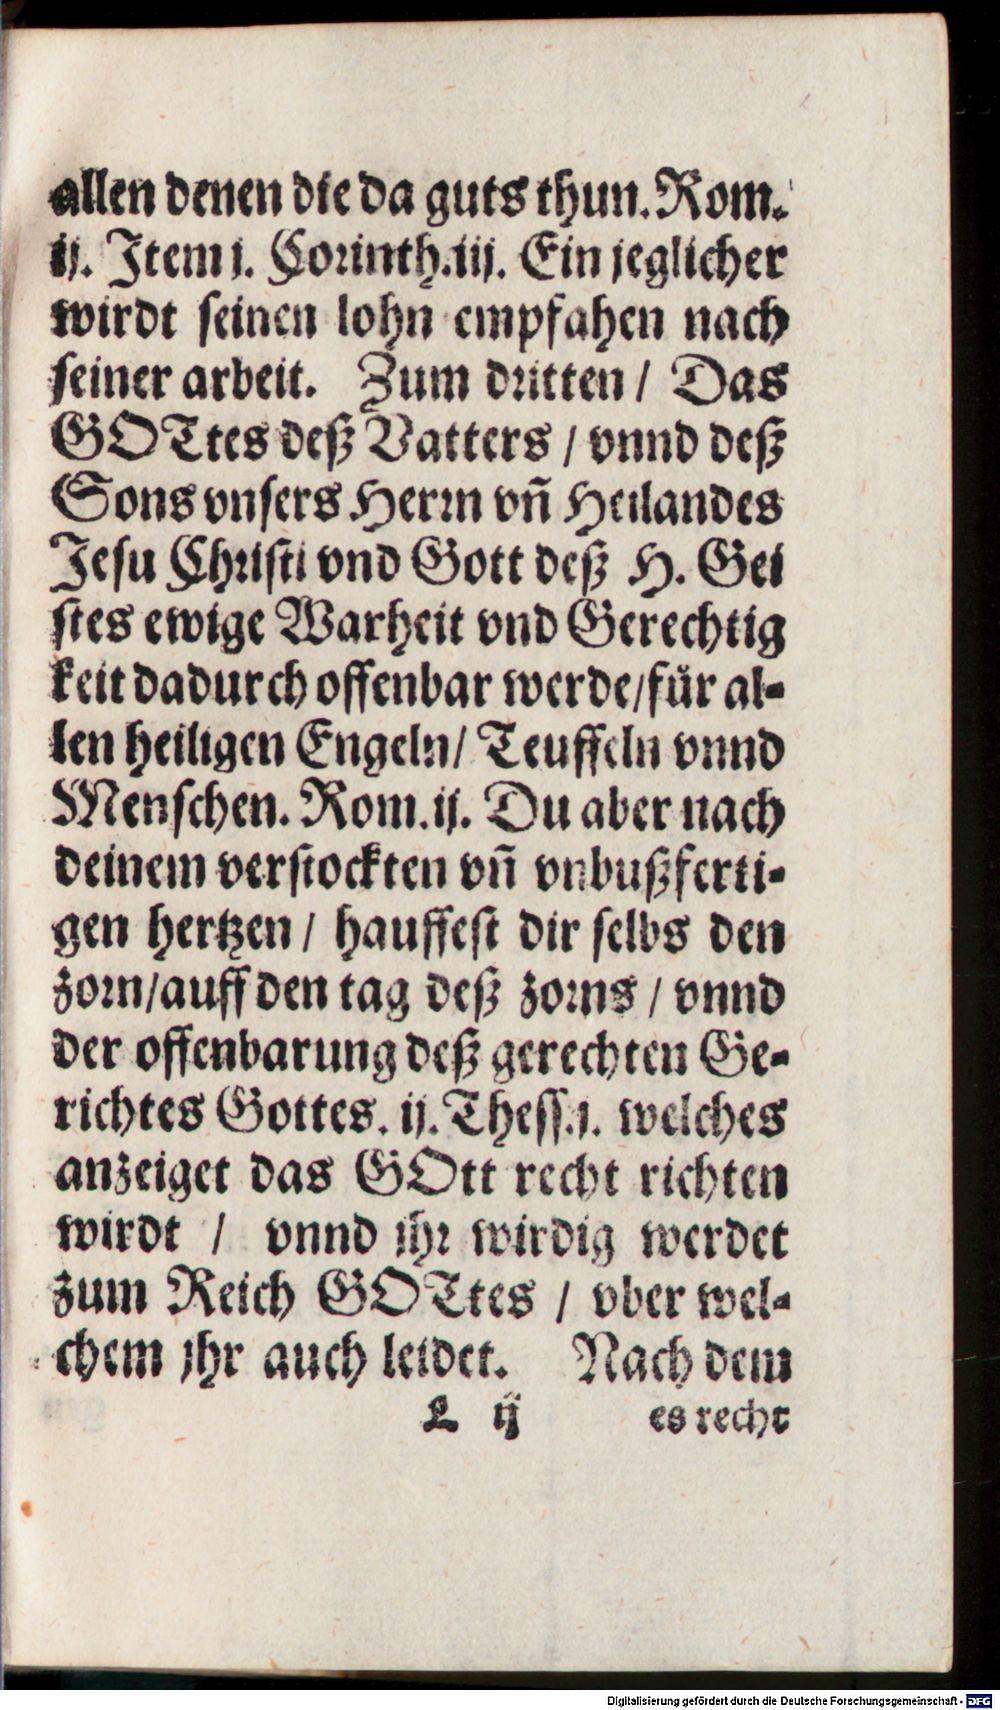 allen denen die da guts thun. Rom.
ij. Item j. Corinth. iij. Ein jeglicher
wirdt seinen lohn empfahen nach
seiner arbeit. Zum dritten / Das
GOTtes deß Vatters / vnnd deß
Sons vnsers Herrn vñ Heilandes
Jesu Christi vnd Gott deß H. Gei
stes ewige Warheit vnd Gerechtig
keit dadurch offenbar werde/für al-
len heiligen Engeln/ Teuffeln vnnd
Menschen. Rom. ij. Du aber nach
deinem verstockten vñ vnbußferti-
gen hertzen / hauffest dir selbs den
zorn/auff den tag deß zorns / vnnd
der offenbarung deß gerechten Ge-
richtes Gottes. ij. Thess. j. welches
anzeiget das GOtt recht richten
wirdt / vnnd jhr wirdig werdet
zum Reich GOTtes / vber wel-
chem jhr auch leidet. Nach dem
L ij es recht
Digitalisierung gefördert durch die Deutsche Forschungsgemeinschaft - DFG